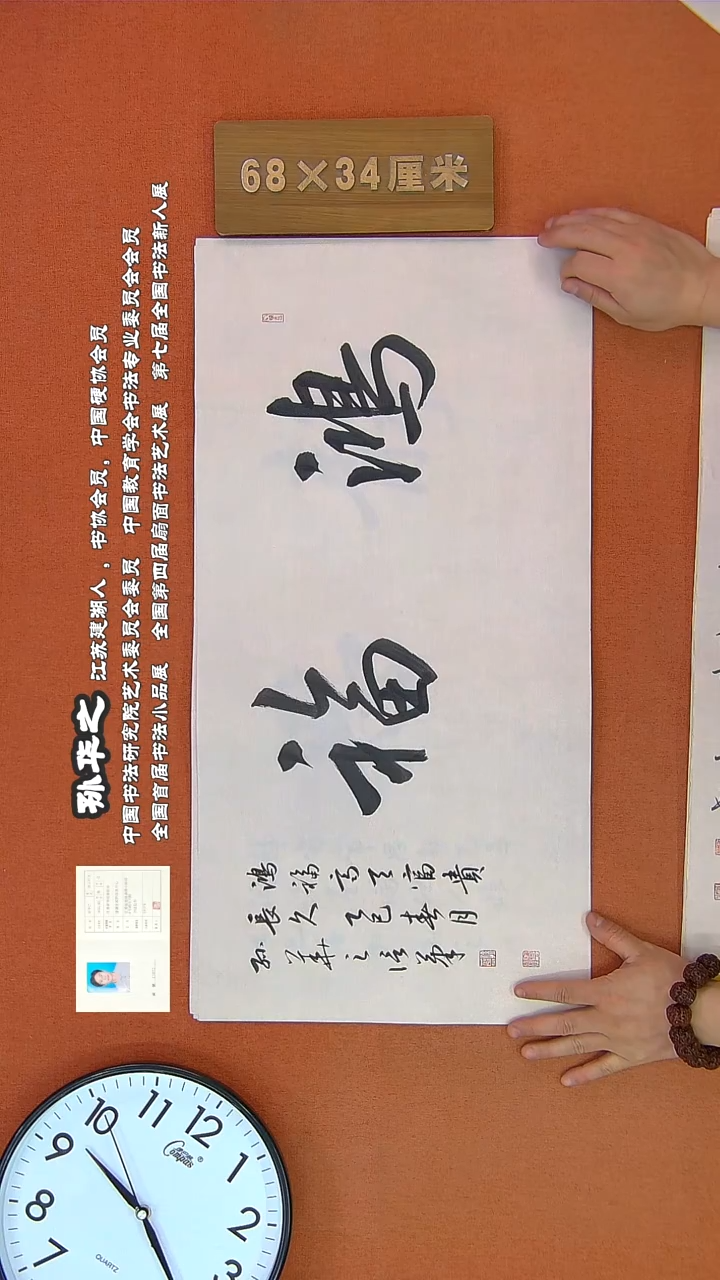 68×34厘米
孙华之 江苏建湖人，书协会员，中国硬协会员
中国书法研究院艺术委员会委员 中国教育学会书法专业委员会会员
全国首届书法小品展 全国第四届扇面书法艺术展 第七届全国书法新人展
鴻福
鴻福高天富貴
長久乙巳春月
孫華之信筆
Compas
QUARTZ
7
8
9
10
11
12
1
2
3